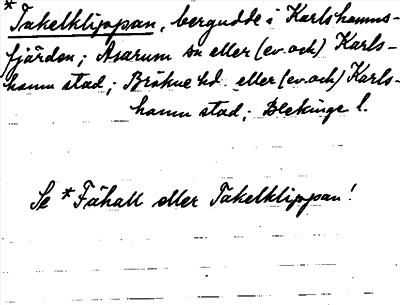 * Takelklippan, bergudde i Karlshamns-
fjärden; Asarum sn eller (ev. och) Karls-
hamn stad; Bräkne hd eller (ev. och) Karls-
hamn stad; Blekinge l.
Se * Fähall eller Takelklippan!